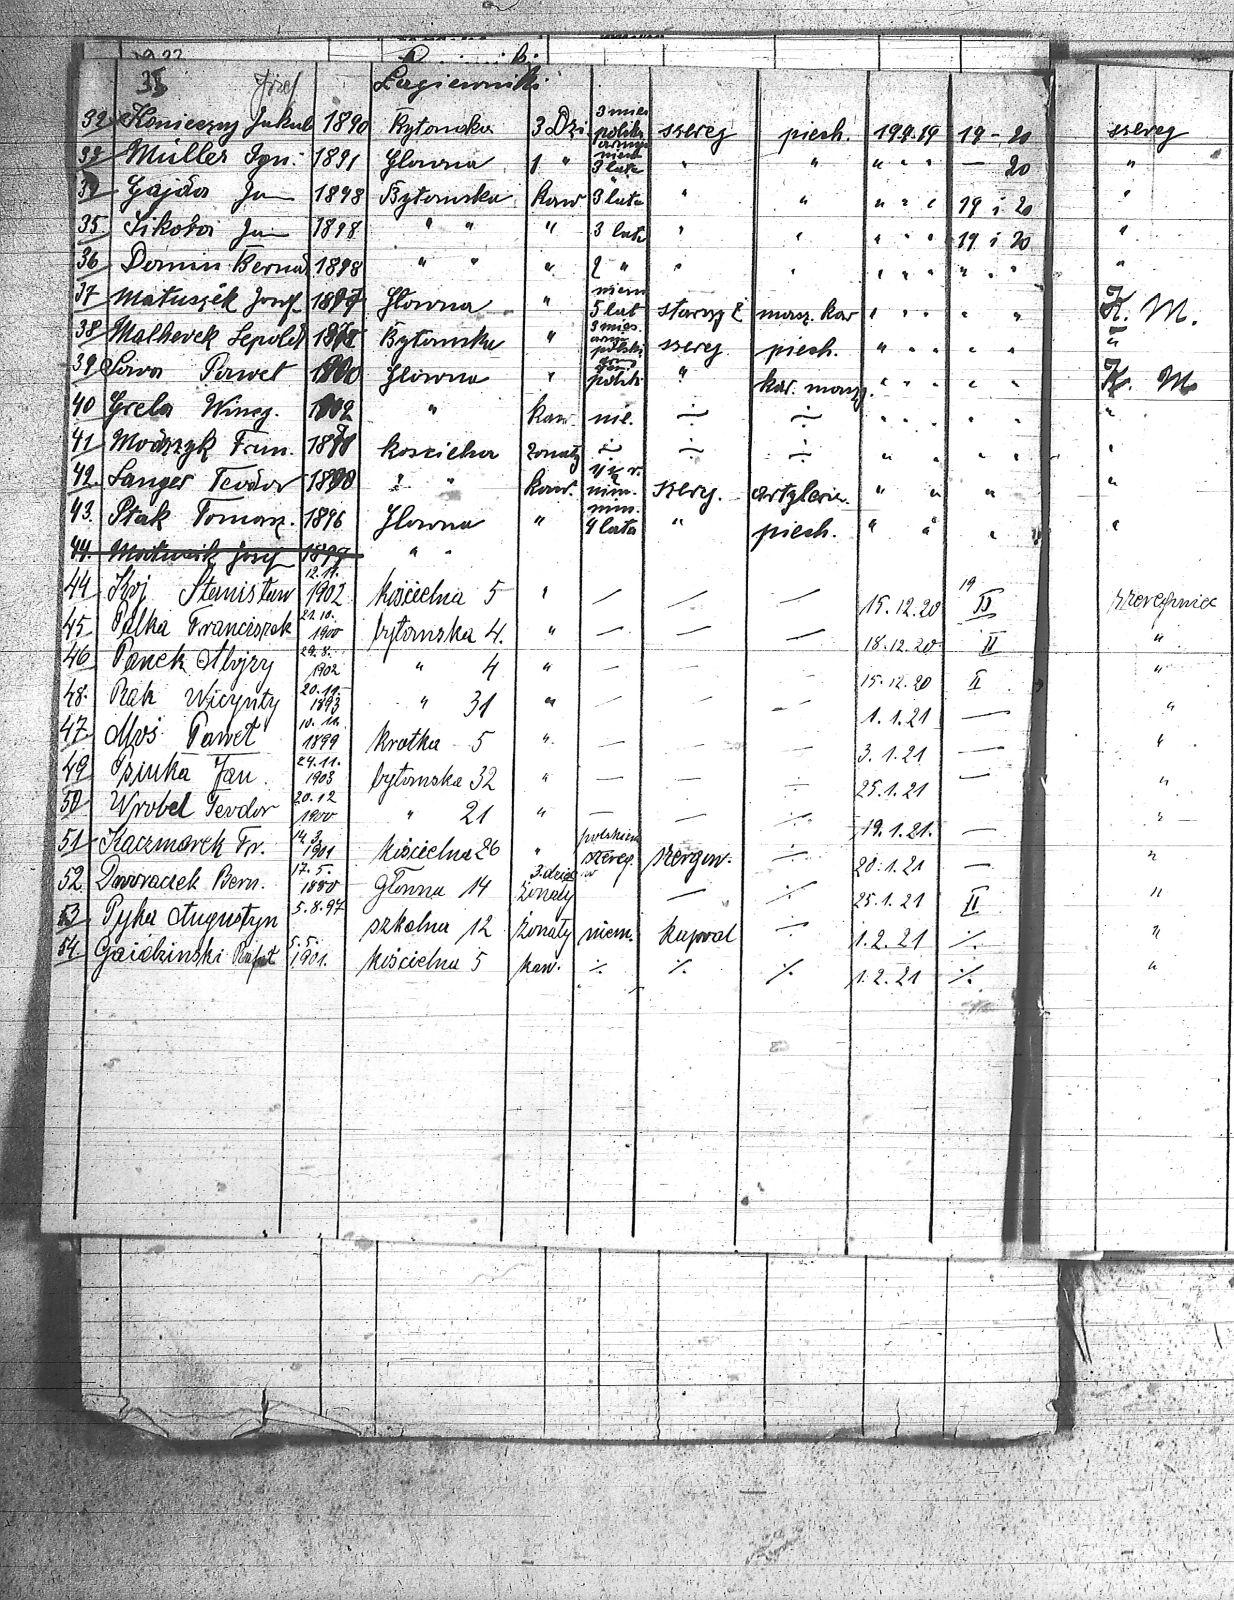 35 Józef Łagiewniki
32 Konieczny Jakub 1890 Bytomska 3 Dzi 3 mies polska szereg piech. 19 9.19 19 - 20 szereg
33 Müller Ign. 1891 Glowna 1 " 3 lata " " " " " — 20 "
34 Gajda Jan 1898 Bytomska kaw 3 lata " " " " " 19 i 20 "
35 Sikora Jan 1898 " " " 3 lata " " " " " 19 i 20 "
36 Domin Bernad 1898 " " " 2 " " " " " " " " " "
37 Matuszek Josef 18 Glowna " niem 5 lat starszy masz. kar " " " " " K. M.
38 Malherek Lepold 18 Bytomska " 3 mies. polski szereg piech. " " " " " "
39 Sowa Paweł Glówna " polsk " kar. maszy. " " " " " K. M
40 Grela Wincz. 1902 " kaw. nie. ÷ ÷ " " " " " "
41 Modrzyk Fran. 18 koscielna zonaty ÷ ÷ ÷ " " " "
42. Langer Teodor 18 " " kaw. niem. szereg. artylerie " " " "
43. Ptak Tomasz. 1896 Glowna " niem. 4 lata " piech. " " " "
44. Josef 1899 " "
44 Koj Stanisław 12.11. 1902 kościelna 5 " — — — 15.12.20 19 II szeregowiec
45 Palka Franciszek 1900 bytomska 4. " — — — 18.12.20 II "
46 Panek Alojzy 29.8. 1902 " 4 " — — — 15.12.20 II "
48. Rak Wicynty 20.11. 1893 " 31 " — — — 1.1.21 — "
47. Moś Paweł 10.11. 1899 krotka 5 " — — — 3.1.21 — "
49 Psiuka Jan. 24.11. 1903 bytomska 32 " — — ÷ 25.1.21 — "
50 Wrobel Teodor 20.12 1900 " 21 " — — ÷ 19.1.21. — "
51 Kaczmarek Fr. 14.3. 1901 kościelna 26 " polskiem szereg. szergow. ÷ 20.1.21 — "
52 Dworaczek Bern. 17.5. 1880 Główna 14 3. dzieci Żonaty — ÷ 25.1.21 II "
53 Pyka Augustyn 5.8.97 szkolna 12 Żonaty niem. kapral ÷ 1.2.21 ·/. "
54. Gaidzinski Rafał 5.5. 1901. kościelna 5 kaw. ·/. ·/. ·/. 1.2.21 ·/. "